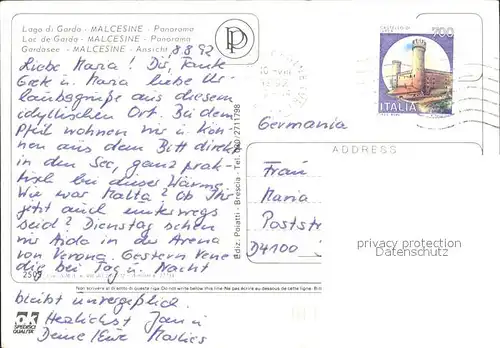 Lago di Garda - MALCESINE - Panorama
Lac de Garda - MALCESINE - Panorama
Gardasee - MALCESINE - Ansicht
8.8.92
Liebe Maria! Dir, Tante
u. Maria liebe Ur-
laubsgrüße aus diesem
idyllischen Ort. Bei dem
Pfeil wohnen wir u. kön-
nen aus dem Bett direkt
in den See, ganz prak-
tisch bei dieser Wärme.
Wie war Malta? Ob Ihr
jetzt auch unterwegs
seid? Dienstag sehen
wir Aida in der Arena
von Verona. Gestern Vene
dig bei Tag u. Nacht
bleibt unvergeßlich.
Herzlichst
Deine/Eure
250
Non scrivere al di sotto di questa riga Do not write below this line Ne pas écrire au-dessous de cette ligne.
OK
SPEDISCI
QUALITA'
P
Ediz. Poiatti - Brescia - Tel. 030/2711798
700
ITALIA
Germania
ADDRESS
Frau
Maria
Poststr
D4100
privacy protection
Datenschutz